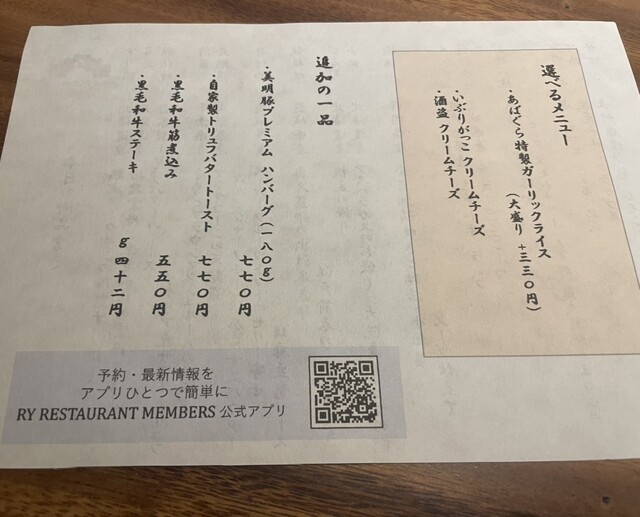 選べるメニュー
・あばぐら特製ガーリックライス
(大盛り +三三〇円)
・いぶりがっこ クリームチーズ
・酒盗 クリームチーズ
追加の一品
・美明豚プレミアム ハンバーグ(一八〇g)
七七〇円
・自家製トリュフバタートースト
七七〇円
・黒毛和牛筋煮込み
五五〇円
・黒毛和牛ステーキ
g 四十二円
予約・最新情報を
アプリひとつで簡単に
RY RESTAURANT MEMBERS 公式アプリ